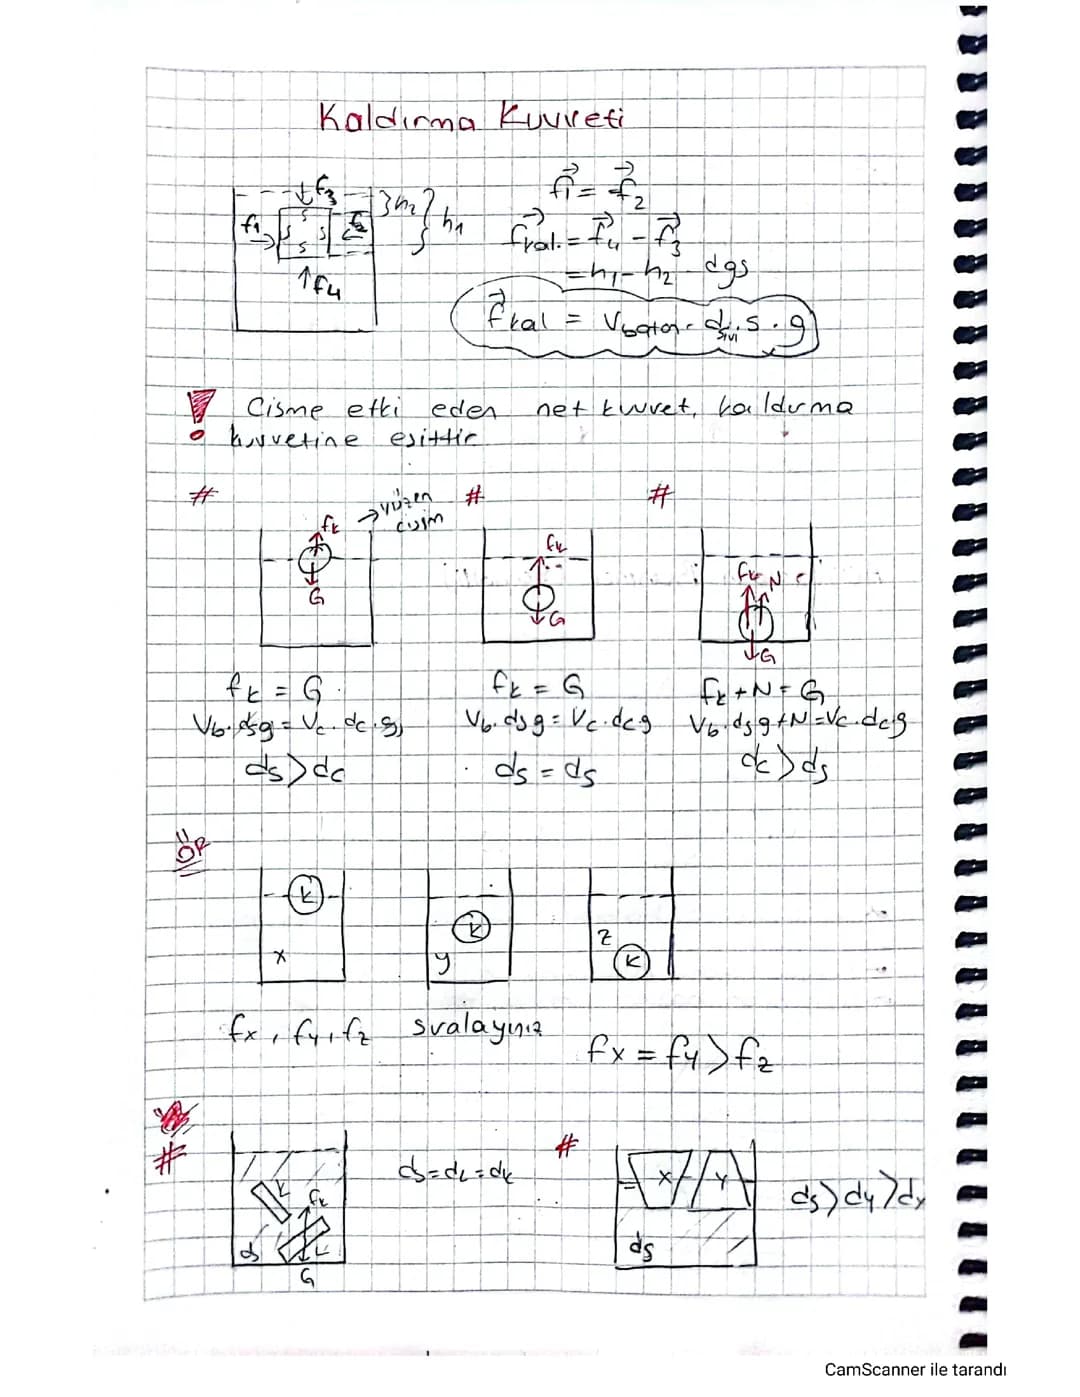 Kaldırma Kuvveti
f3
f1
h2
h1
f4
f1 = f2
fkal. = f4 - f3
= h1 - h2 dgs
fkal = Vbatan . dsıvı . g
! Cisme etki eden net kuvvet, kaldırma
kuvvetine eşittir
#
fk
G
→ yüzen
cisim
#
fk
G
#
fk N
G
fk = G
Vb.dsg = Vc.dc.g
ds > dc
fk = G
Vb.dsg = Vc.dcg
ds = ds
fk + N = G
Vb.dsg + N = Vc.dcg
dc > ds
ÖR
K
x
K
y
K
z
fx, fy, fz sıralayınız
fx = fy > fz
#
fk
ds
G
ds = dL = dK
#
x
y
ds
ds > dy > dx
CamScanner ile tarandı